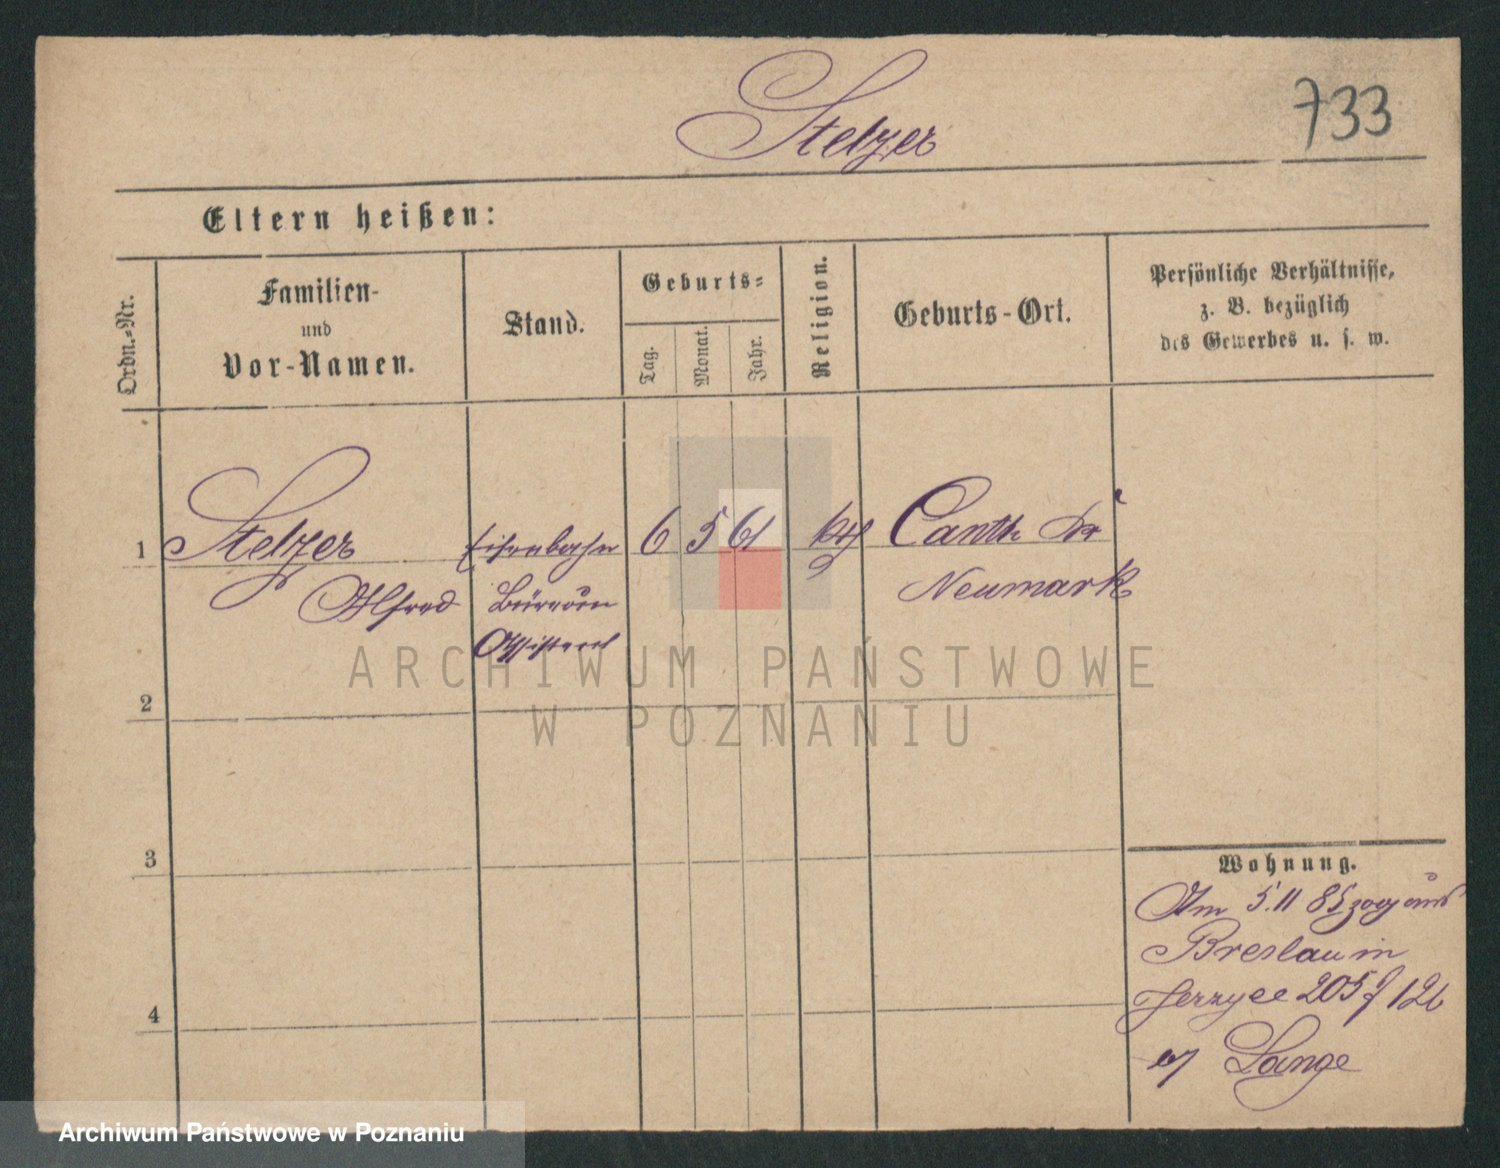 Stelzer
733
Eltern heißen:
Ordn.-Nr.
Familien-
und
Vor-Namen.
Stand.
Geburts-
Tag.
Monat.
Jahr.
Religion.
Geburts-Ort.
Persönliche Verhältnisse,
z. B. bezüglich
des Gewerbes u. s. w.
1
Stelzer
Alfred
Eisenbahn
Büreau
Assistent
6 5 61
kth
Canth Kr
Neumark
2
3
4
Wohnung.
Am 5.11 85 zog aus
Breslau in
Jerzyce 205 f 126
Lange
ARCHIWUM PAŃSTWOWE
W POZNANIU
Archiwum Państwowe w Poznaniu